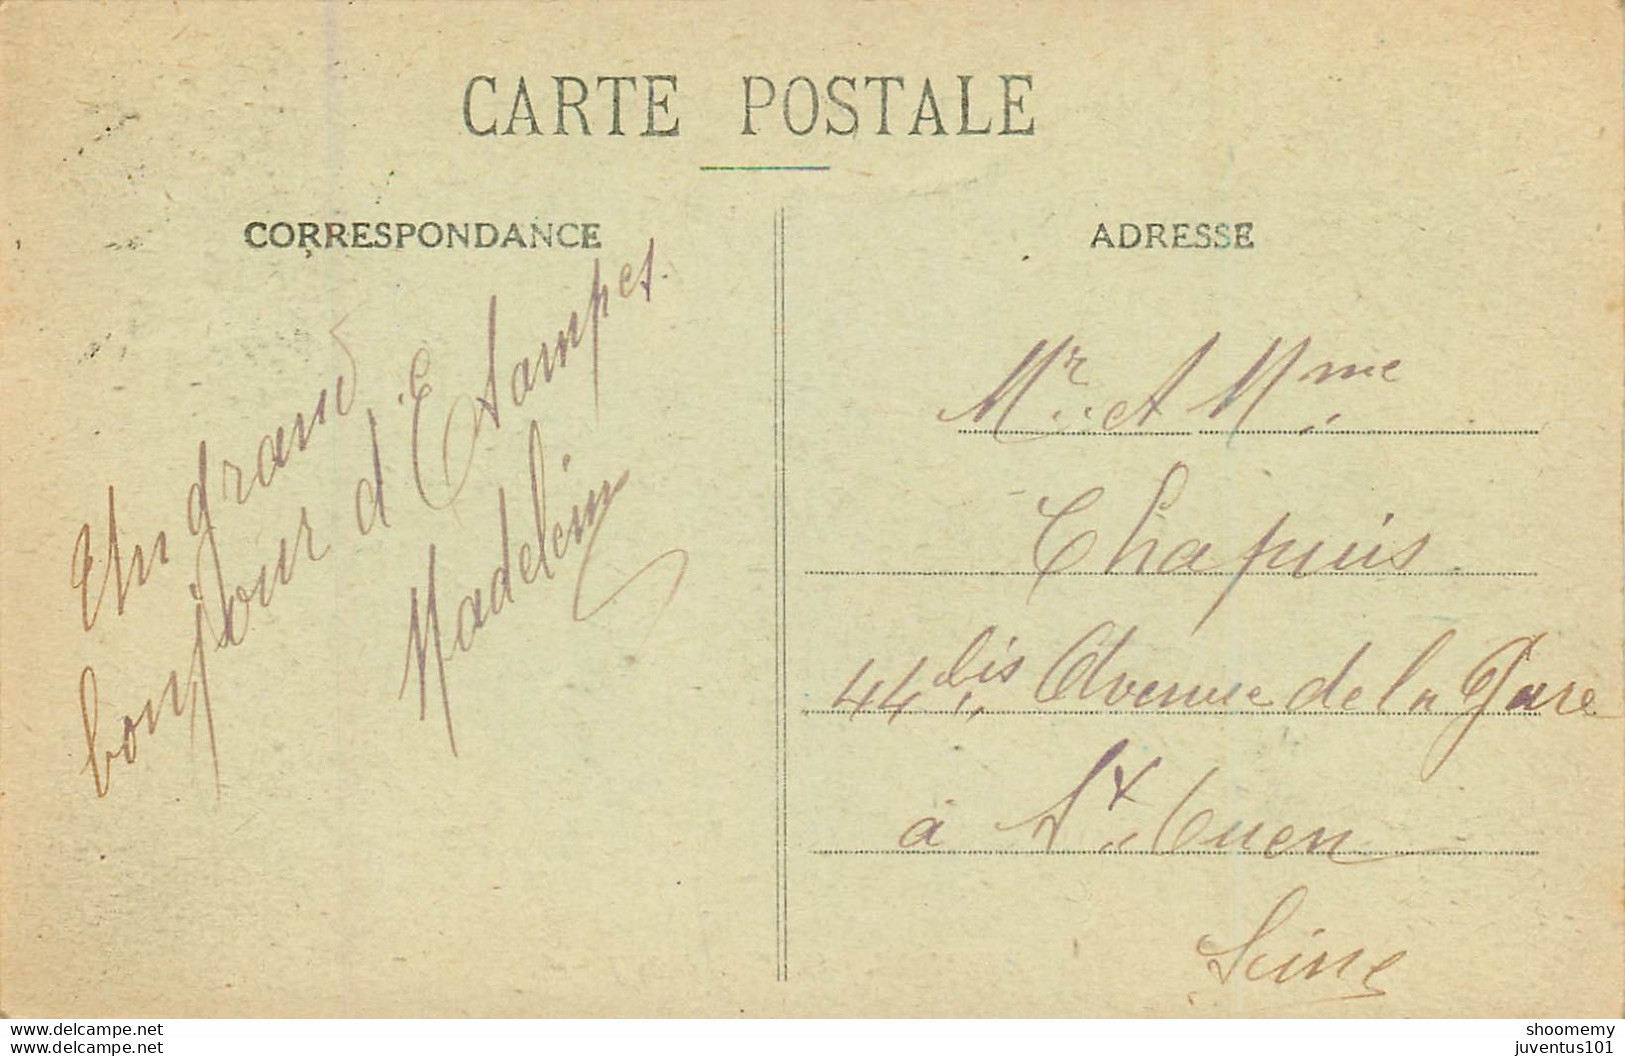 CARTE POSTALE
CORRESPONDANCE
Un grand
bonjour d'Etampes.
Madelein
ADRESSE
Mr et Mme
Chapuis.
44 bis Avenue de la Gare
à St Ouen
Seine
www.delcampe.net
www.delcampe.net
shoomemy
juventus101